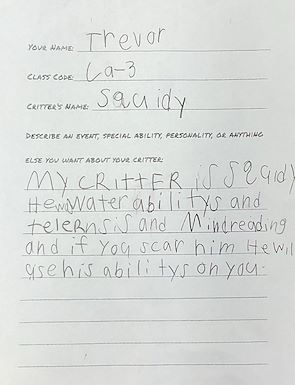 YOUR NAME: Trevor
CLASS CODE: La-3
CRITTER'S NAME: Squidy
DESCRIBE AN EVENT, SPECIAL ABILITY, PERSONALITY, OR ANYTHING
ELSE YOU WANT ABOUT YOUR CRITTER:
MY CRITTER iS SQuidy
He water abilitys and
teleknsis and Mindreading
and if you scar him He wil
use his abilitys on you.